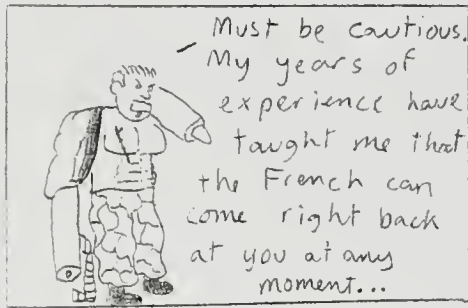 Must be cautious.
My years of
experience have
taught me that
the French can
come right back
at you at any
moment...